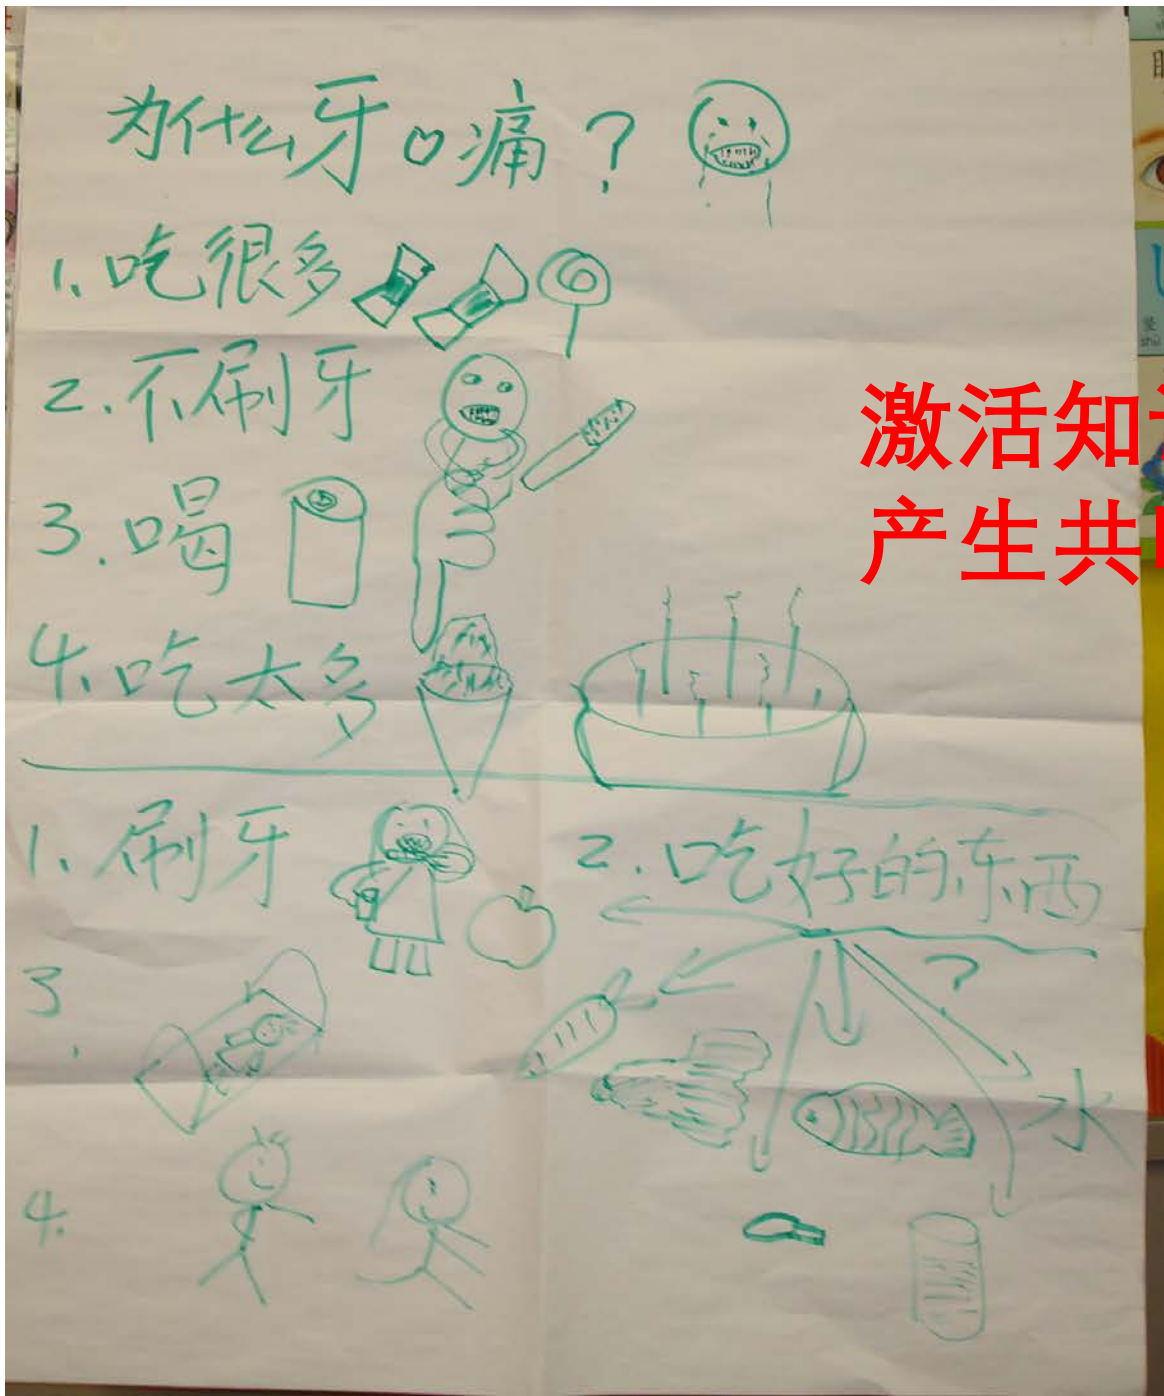 为什么牙痛？
1.吃很多
2.不刷牙
3.喝
4.吃太多
1.刷牙
2.吃好的东西
?
3.
水
4.
激活知
产生共
shù